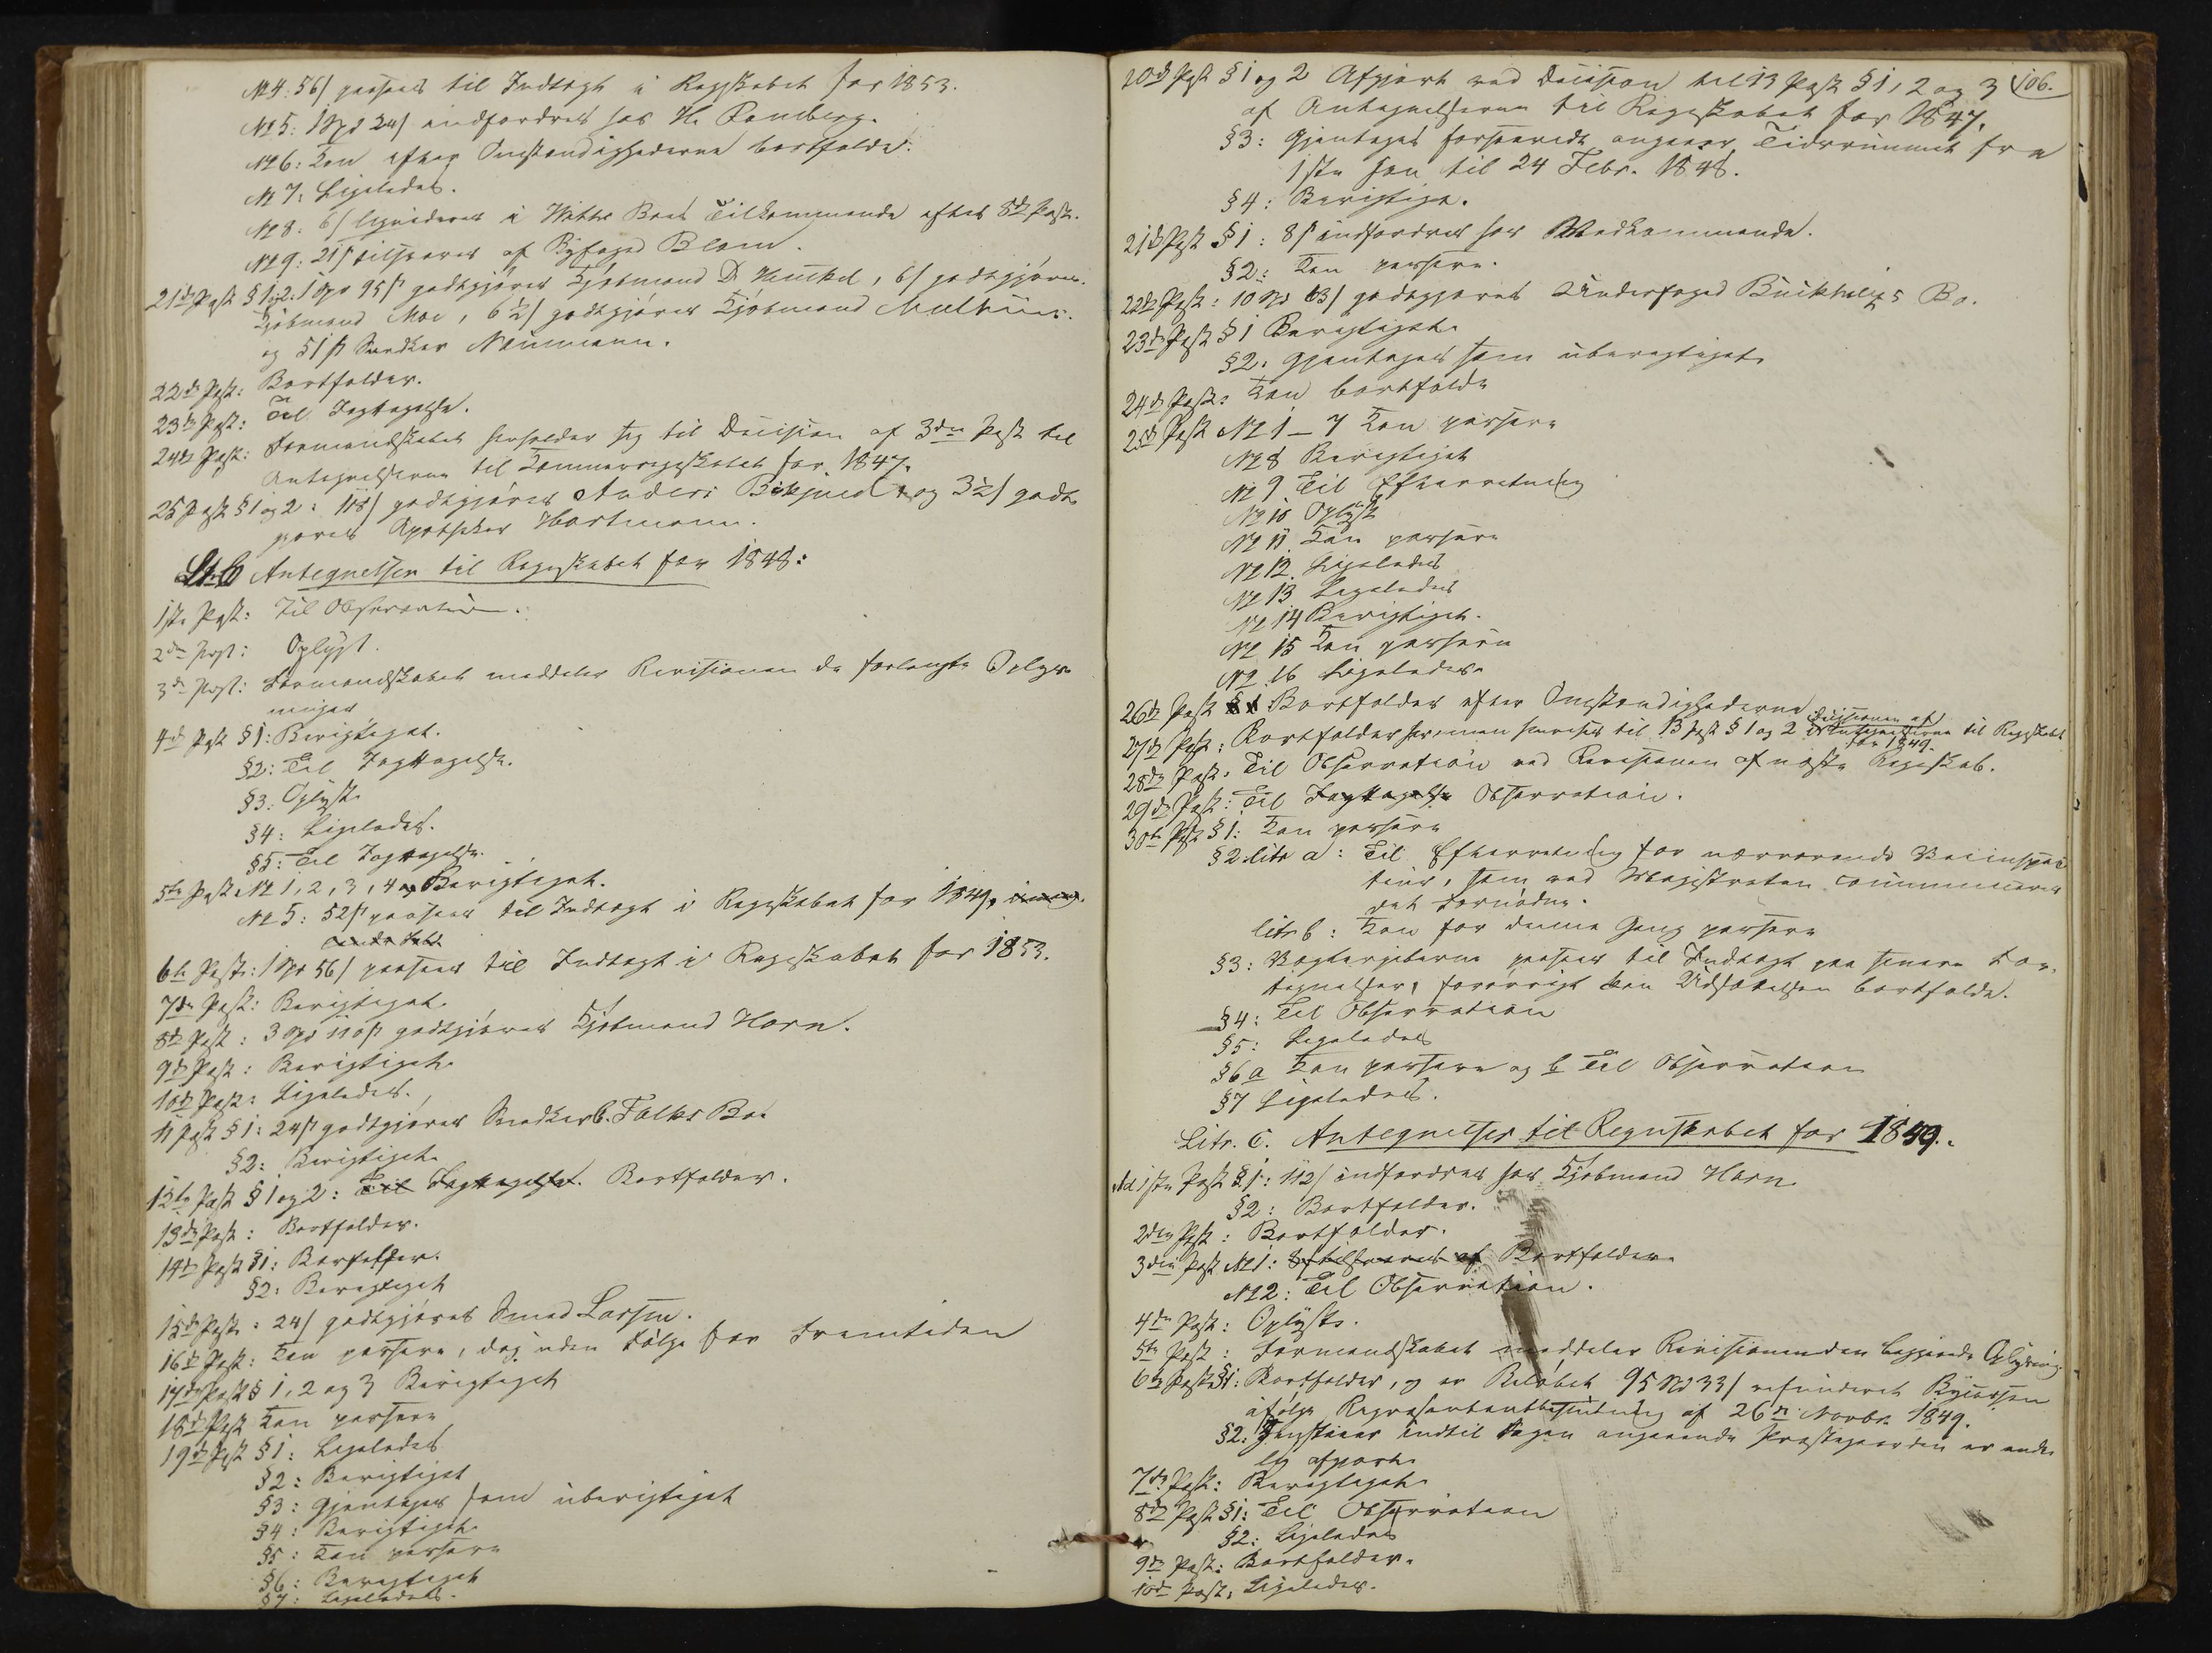 № 4: 56/ passeres til Indtægt i Regnskabet for 1853.
№ 5: 1 Spd 24/ indfordres hos H. Ramberg.
№ 6: Kan efter Omstændighederne bortfalde.
№ 7: Ligeledes.
№ 8: 6/ i Boes Tilkommende efter 8de Post.
№ 9: 21/ tilsvares af Byfoged Blom.
21de Post § 1 og 2: 1 Spd 95/ godtgjøres Kjøbmand D. Henckel, 6/ godtgjøres
Kjøbmand Moe, 6½/ godtgjøres Kjøbmand
og 51/ Snedker Neumann.
22de Post: Bortfalder.
23de Post: Til Iagttagelse.
24de Post: Formandskabet henholder sig til Decision af 3die Post til
Antegnelserne til Kæmnerregnskabet for 1847.
25 Post § 1 og 2: 118/ godtgjøres Anders og 3½/ godt-
gjøres Apotheker Hartmann.
Lit. b Antegnelser til Regnskabet for 1848:
1ste Post: Til Observation.
2den Post: Oplyst.
3die Post: Formandskabet meddeler Revisionen de forlangte Oplys-
ninger
4de Post § 1: Berigtiget.
§ 2: Til Iagttagelse.
§ 3: Oplyst.
§ 4: Ligeledes.
§ 5: Til Iagttagelse.
5te Post № 1, 2, 3, 4 og Berigtiget.
№ 5: 52/ passeres til Indtægt i Regnskabet for 1849,
6te Post: 1 Spd 56/ passeres til Indtægt i Regnskabet for 1853.
7de Post: Berigtiget.
8de Post: 3 Spd 110/ godtgjøres Kjøbmand Horn.
9de Post: Berigtiget.
10de Post: Ligeledes.
11 Post § 1: 24/ godtgjøres Snedker C. Falks Bo.
§ 2: Berigtiget.
12te Post § 1 og 2: Til Iagttagelse. Bortfalder.
13de Post: Bortfalder.
14de Post § 1: Bortfalder.
§ 2: Berigtiget
15de Post: 24/ godtgjøres Smed Larsen.
16de Post: Kan passere, dog uden Følge for Fremtiden
17de Post § 1, 2 og 3 Berigtiget
18de Post Kan passere
19de Post § 1: Ligeledes
§ 2: Berigtiget
§ 3: Gjentages som uberigtiget
§ 4: Berigtiget.
§ 5: Kan passere
§ 6: Berigtiget
§ 7: Ligeledes.
106.
20de Post § 1 og 2 Afgjort ved Decision til 13 Post § 1, 2 og 3
af Antegnelserne til Regnskabet for 1847.
§ 3: Gjentages forsaavidt angaaer Tidsrummet fra
1ste Jan til 24 Febr. 1848.
§ 4: Berigtiges.
21de Post § 1: 8/ indfordres hos Vedkommende.
§ 2: Kan passere.
22de Post: 10 Spd 63/ godtgjøres Underfoged Bo.
23de Post § 1 Berigtiget
§ 2: Gjentages som uberigtiget
24de Post: Kan bortfalde
25de Post № 1 – 7 Kan passere
№ 8 Berigtiget
№ 9 Til Efterretning
№ 10 Oplyst
№ 11. Kan passere
№ 12. Ligeledes
№ 13 Ligeledes
№ 14 Berigtiget.
№ 15 Kan passere
№ 16 Ligeledes.
26de Post § 1 Bortfalder efter Omstændighederne
27de Post: Bortfalder, man henviser til 13 Post § 1 og 2 Decisionen af Antegnelserne til Regnskabet
for 1849.
28de Post: Til Observation ved Revisionen af næste Regnskab.
29de Post: Til Iagttagelse Observation.
30te Post § 1: Kan passere
§ 2 litr a: Til Efterretning for nærværende Veiinspec-
teur, som ved Magistraten communiceres
det Fornødne.
litr b: Kan for denne Gang passere
§ 3: passeres til Indtægt paa senere For-
tegnelser, forøvrigt kan Udsættelsen bortfalde.
§ 4: Til Observation
§ 5: Ligeledes
§ 6 a Kan passere og b Til Observation
§ 7 Ligeledes.
Litr. C. Antegnelser til Regnskabet for 1849.
Ad 1ste Post § 1: 112/ indfordres hos Kjøbmand Horn
§ 2: Bortfalder.
2den Post: Bortfalder.
3die Post № 1: tilsvares af Bortfalder
№ 2: Til Observation.
4de Post: Oplyst.
5te Post: Formandskabet meddeler Revisionen den begjerede Oplysning
6te Post § 1: Bortfalder, og er Beløbet 95 Spd 33/ refunderet Bycassen
ifølge Repræsentantbeslutning af 26de Novbr. 1849.
§ 2: indtil Sagen angaaende Præstegaarden er ende-
lig afgjort.
7de Post: Berigtiget
8de Post § 1: Til Observation
§ 2: Ligeledes
9de Post: Bortfalder.
10de Post: Ligeledes.